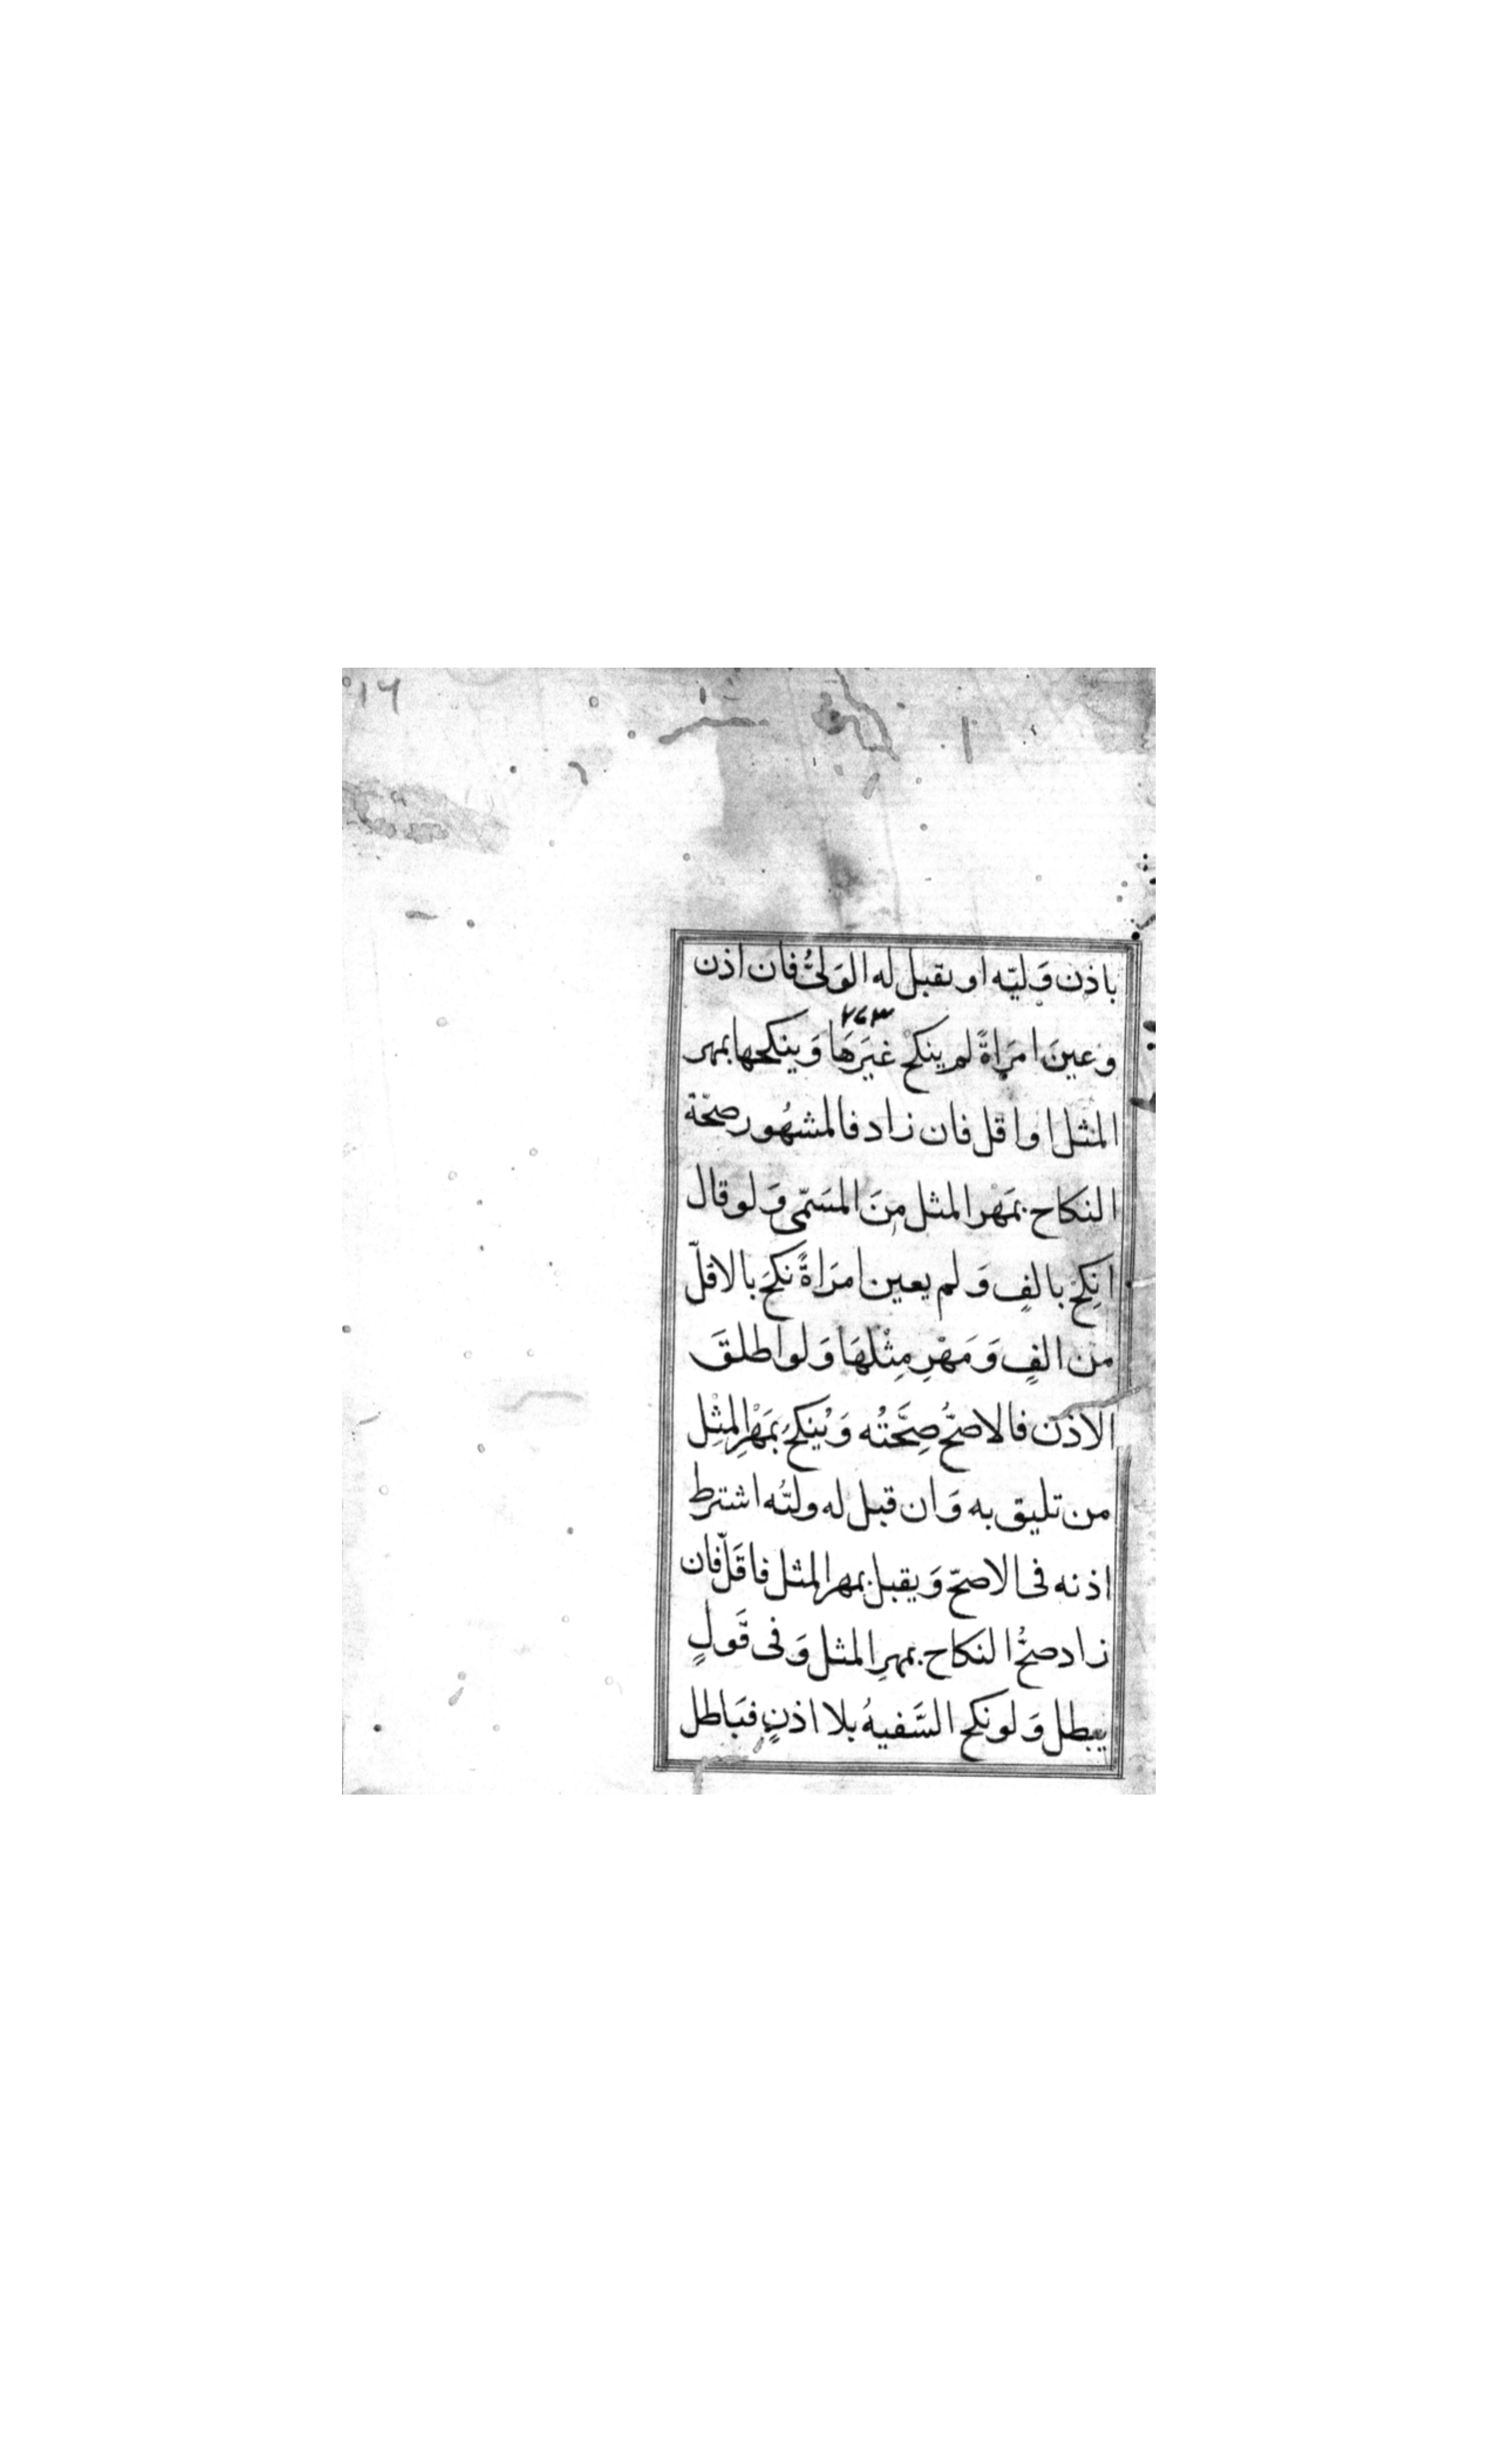 ١٦
باذن وَليّه او يقبل له الوَلىُّ فان اذن
وعينَ امرَاةً لم ينكحْ غيرَهَا وَينكحها بمهر
المثل او اقل فان زاد فالمشهُور صحّة
النكاح بمَهْر المثل مِنَ المسَمّى وَلو قال
انكِحْ بالفٍ وَلم يعين امرَاةً نكحَ بالاقلّ
من الفٍ وَمَهْرِ مِثْلهَا وَلو اطلقَ
الاذن فالاصحُّ صِحَّتُه وَيُنكحَ بمَهْرِ المثِل
من تليق به وَان قبل له وليّه اشترط
اذنه فى الاصحّ وَيقبل بمهر المثل فاقَلّ فان
زاد صحَّ النكاح بمهرِ المثل وَفى قَولٍ
يبطل وَلو نكح السَّفيهُ بلا اذنٍ فبَاطل